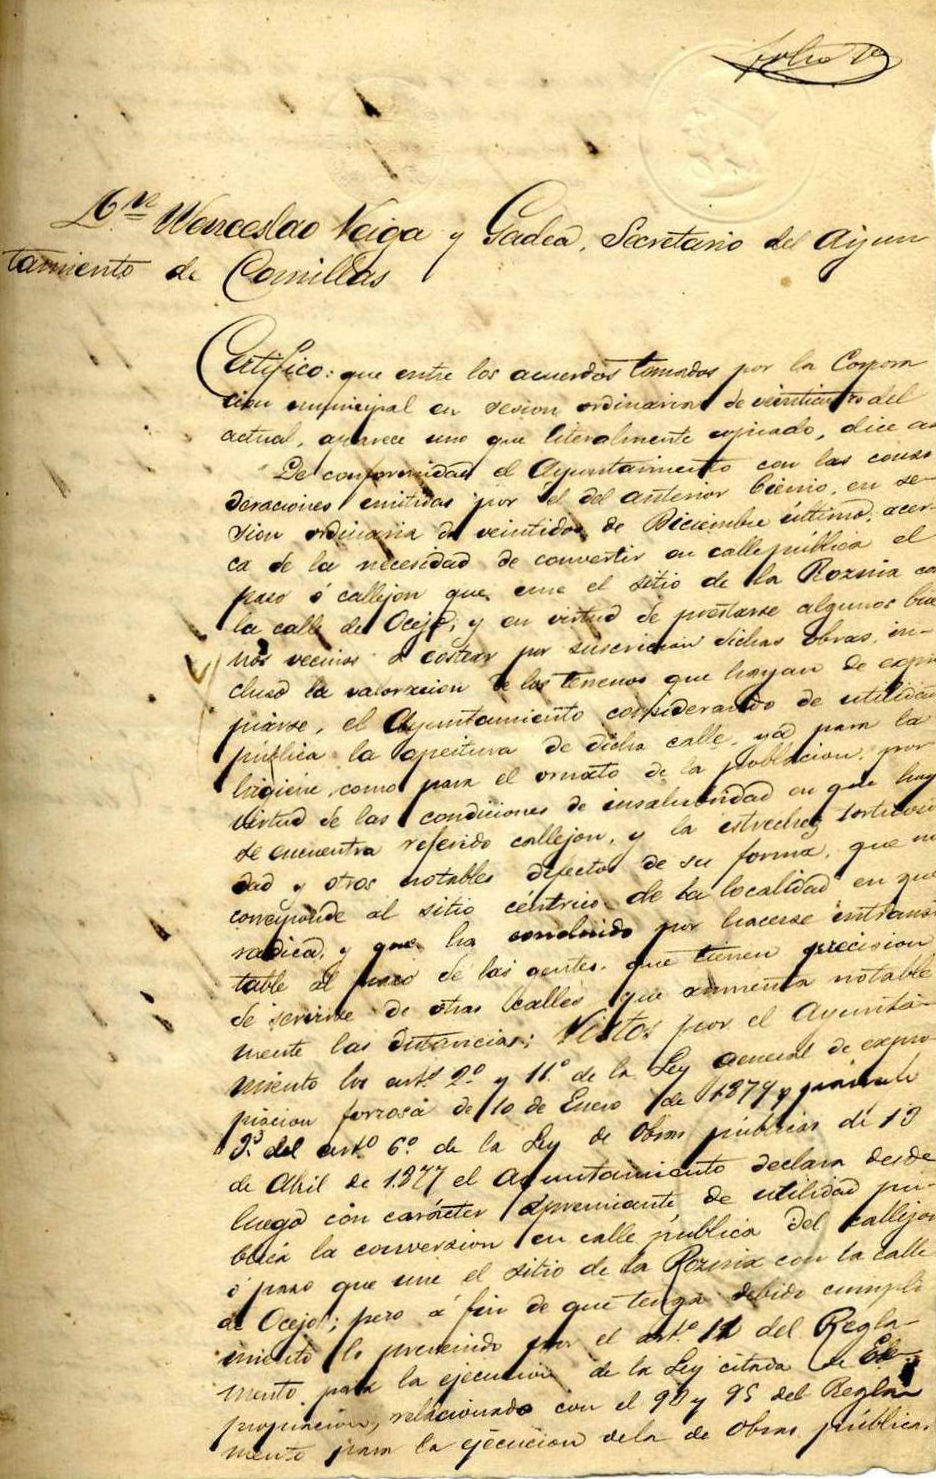 Folio 1º
Dn Wenceslao Veiga y Gadea, Secretario del Ayun
tamiento de Comillas
Certifico: que entre los acuerdos tomados por la Corpora
cion municipal en sesion ordinaria de veinticuatro del
actual, aparece uno que literalmente copiado, dice asi
"De conformidad el Ayuntamiento con las consi
deraciones emitidas por el del anterior bienio, en se-
sion ordinaria de veintidos de Diciembre último, acer-
ca de la necesidad de convertir en calle pública el
paso ó callejon que une el sitio de la Roznia con
la calle de Ocejo; y en virtud de prestarse algunos bue
nos vecinos á costear por suscricion dichas obras, in-
cluso la valoracion de los terrenos que hayan de expro
piarse, el Ayuntamiento, considerando de utilidad
pública la apertura de dicha calle, ya para la
higiene, como para el ornato de la poblacion, por
virtud de las condiciones de insalubridad en que hoy
se encuentra referido callejon, y la estrechez tortuosi
dad y otros notables defectos de su forma, que no
corresponde al sitio céntrico de la localidad en que
radica, y que ha concluido por hacerse intransi
table al paso de las gentes, que tienen precision
de servirse de otras calles que aumenta notable
mente las distancias; Vistos por el Ayunta-
miento los arts. 2º y 11º de la Ley general de expro
piacion forzosa de 10 de Enero de 1879 y párrafo
2º del artº 6º de la Ley de Obras públicas de 13
de Abril de 1877 el Ayuntamiento declara desde
luego con carácter apremiante, de utilidad pú-
blica la conversion en calle pública del callejon
ó paso que une el sitio de la Roznia con la calle
de Ocejo; pero á fin de que tenga debido cumpli
miento lo prevenido por el artº 11 del Regla-
mento para la ejecucion de la Ley citada de Ex-
propiacion, relacionado con el 90 y 95 del Regla
mento para la ejecucion de la de Obras públicas,